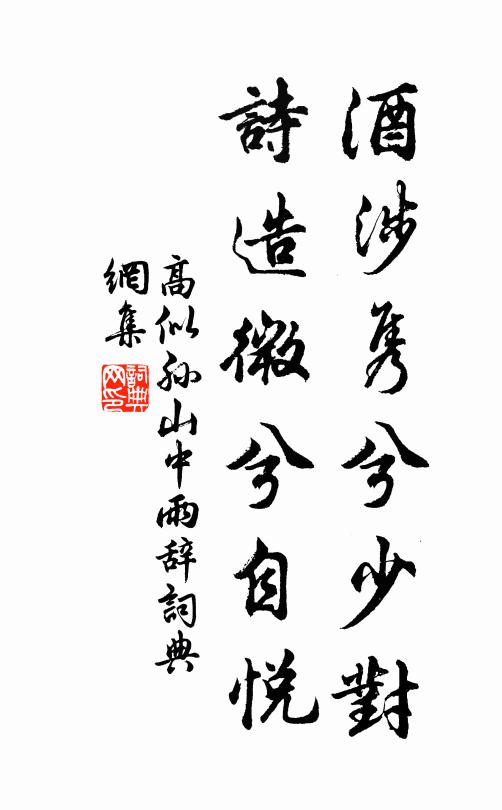 酒涉隽兮少對
詩造微兮自悅
高似孙山中雨辞詞典
網集
詞典
网印